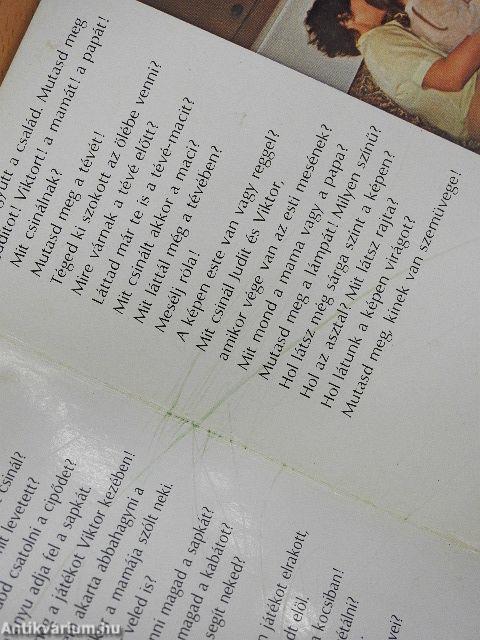 együtt a család. Mutasd meg
Juditot! Viktort! a mamát! a papát!
Mit csinálnak?
Mutasd meg a tévét!
Téged ki szokott az ölébe venni?
Mire várnak a tévé előtt?
Láttad már te is a tévé-macit?
Mit csinált akkor a maci?
Mit láttál még a tévében?
Mesélj róla!
A képen este van vagy reggel?
Mit csinál Judit és Viktor,
amikor vége van az esti mesének?
Mit mond a mama vagy a papa?
Mutasd meg a lámpát! Milyen színű?
Hol látsz még sárga színt a képen?
Hol az asztal? Mit látsz rajta?
Hol látunk a képen virágot?
Mutasd meg, kinek van szemüvege!
csinál?
levetett?
csatolni a cipődet?
adja fel a sapkát.
a játékot Viktor kezében!
akarta abbahagyni a
a mamája szólt neki.
veled is?
magad a sapkát?
magad a kabátot?
segít neked?
játékot elrakott,
elő!
kocsiban!
Antikvárium.hu